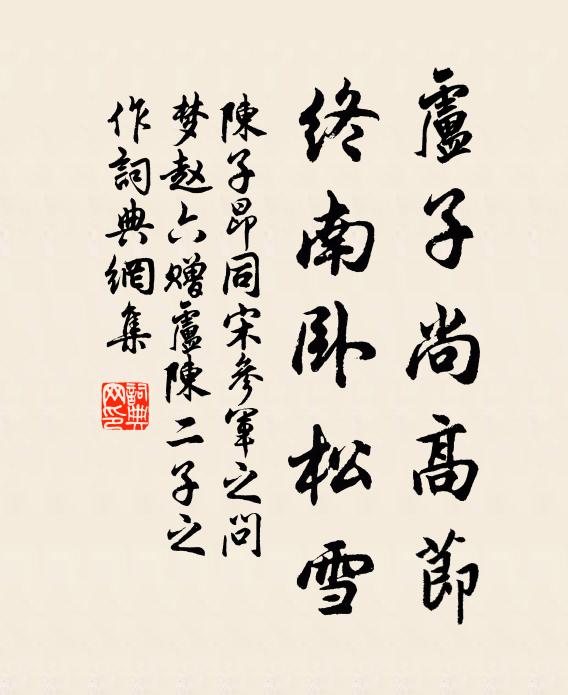 盧子尚高節
終南卧松雪
陳子昂同宋參軍之問
梦赵六赠盧陳二子之
作詞典網集
詞典網印